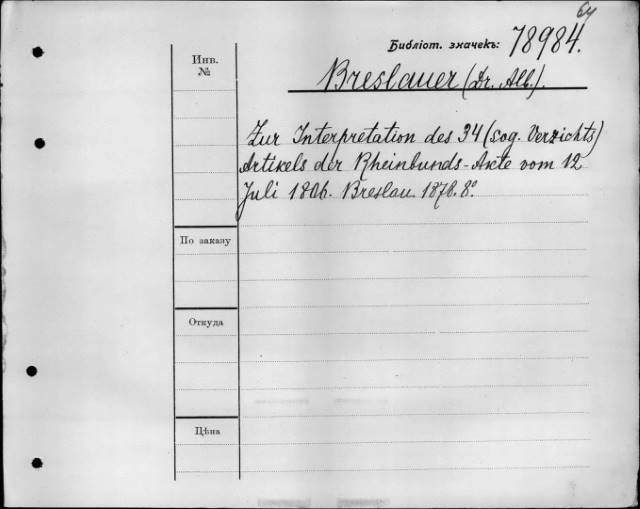 64
Библіот. значекъ: 78984.
Инв.
№
Breslauer (Dr. Alb.).
Zur Interpretation des 34 (sog. Verzichts)
Artikels der Rheinbunds-Akte vom 12
Juli 1806. Breslau. 1876. 8º
По заказу
Откуда
Цѣна